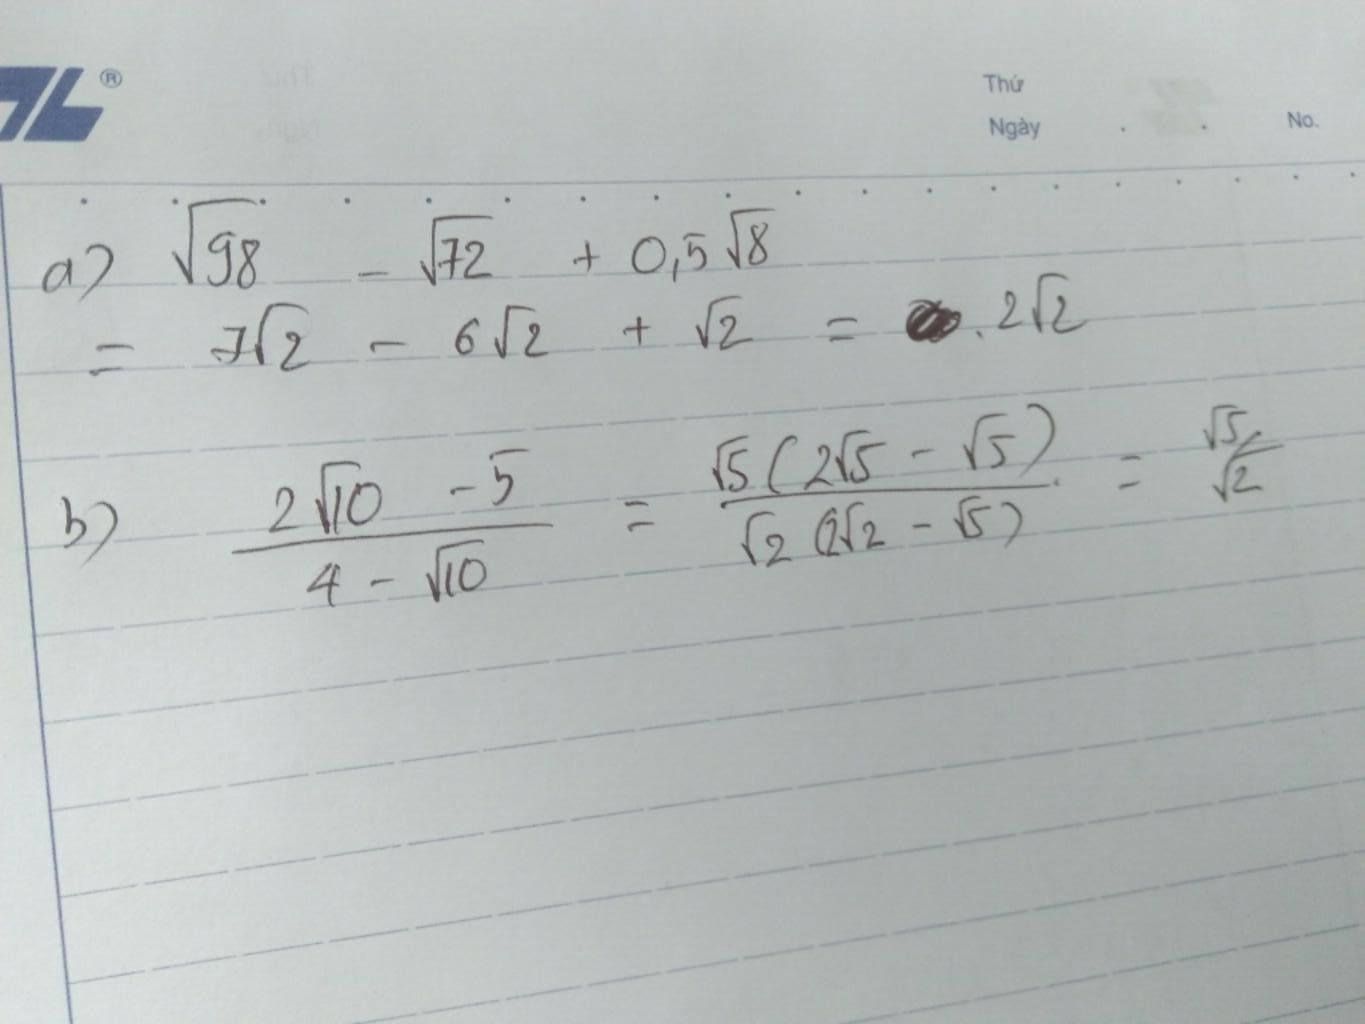 ®
Thứ
Ngày . . No.
a) √98 - √72 + 0,5√8
= 7√2 - 6√2 + √2 = . 2√2
b) (2√10 - 5)/(4 - √10) = (√5(2√5 - √5))/(√2(2√2 - √5)) = √5/√2